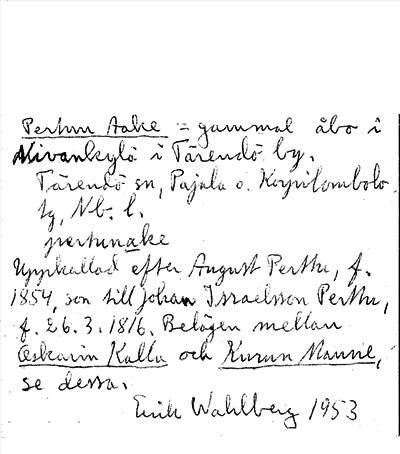 Pertun Aake = gammal åbo i
Alivankylä i Tärendö by.
Tärendö sn, Pajala o. Korpilombolo
tg, Nb. l.
pertunake
Uppkallad efter August Perttu, f.
1854, son till Johan Israelsson Perttu,
f. 26.3.1816. Belägen mellan
Oskarin Kalla och Kurun Maunu,
se dessa.
Erik Wahlberg 1953